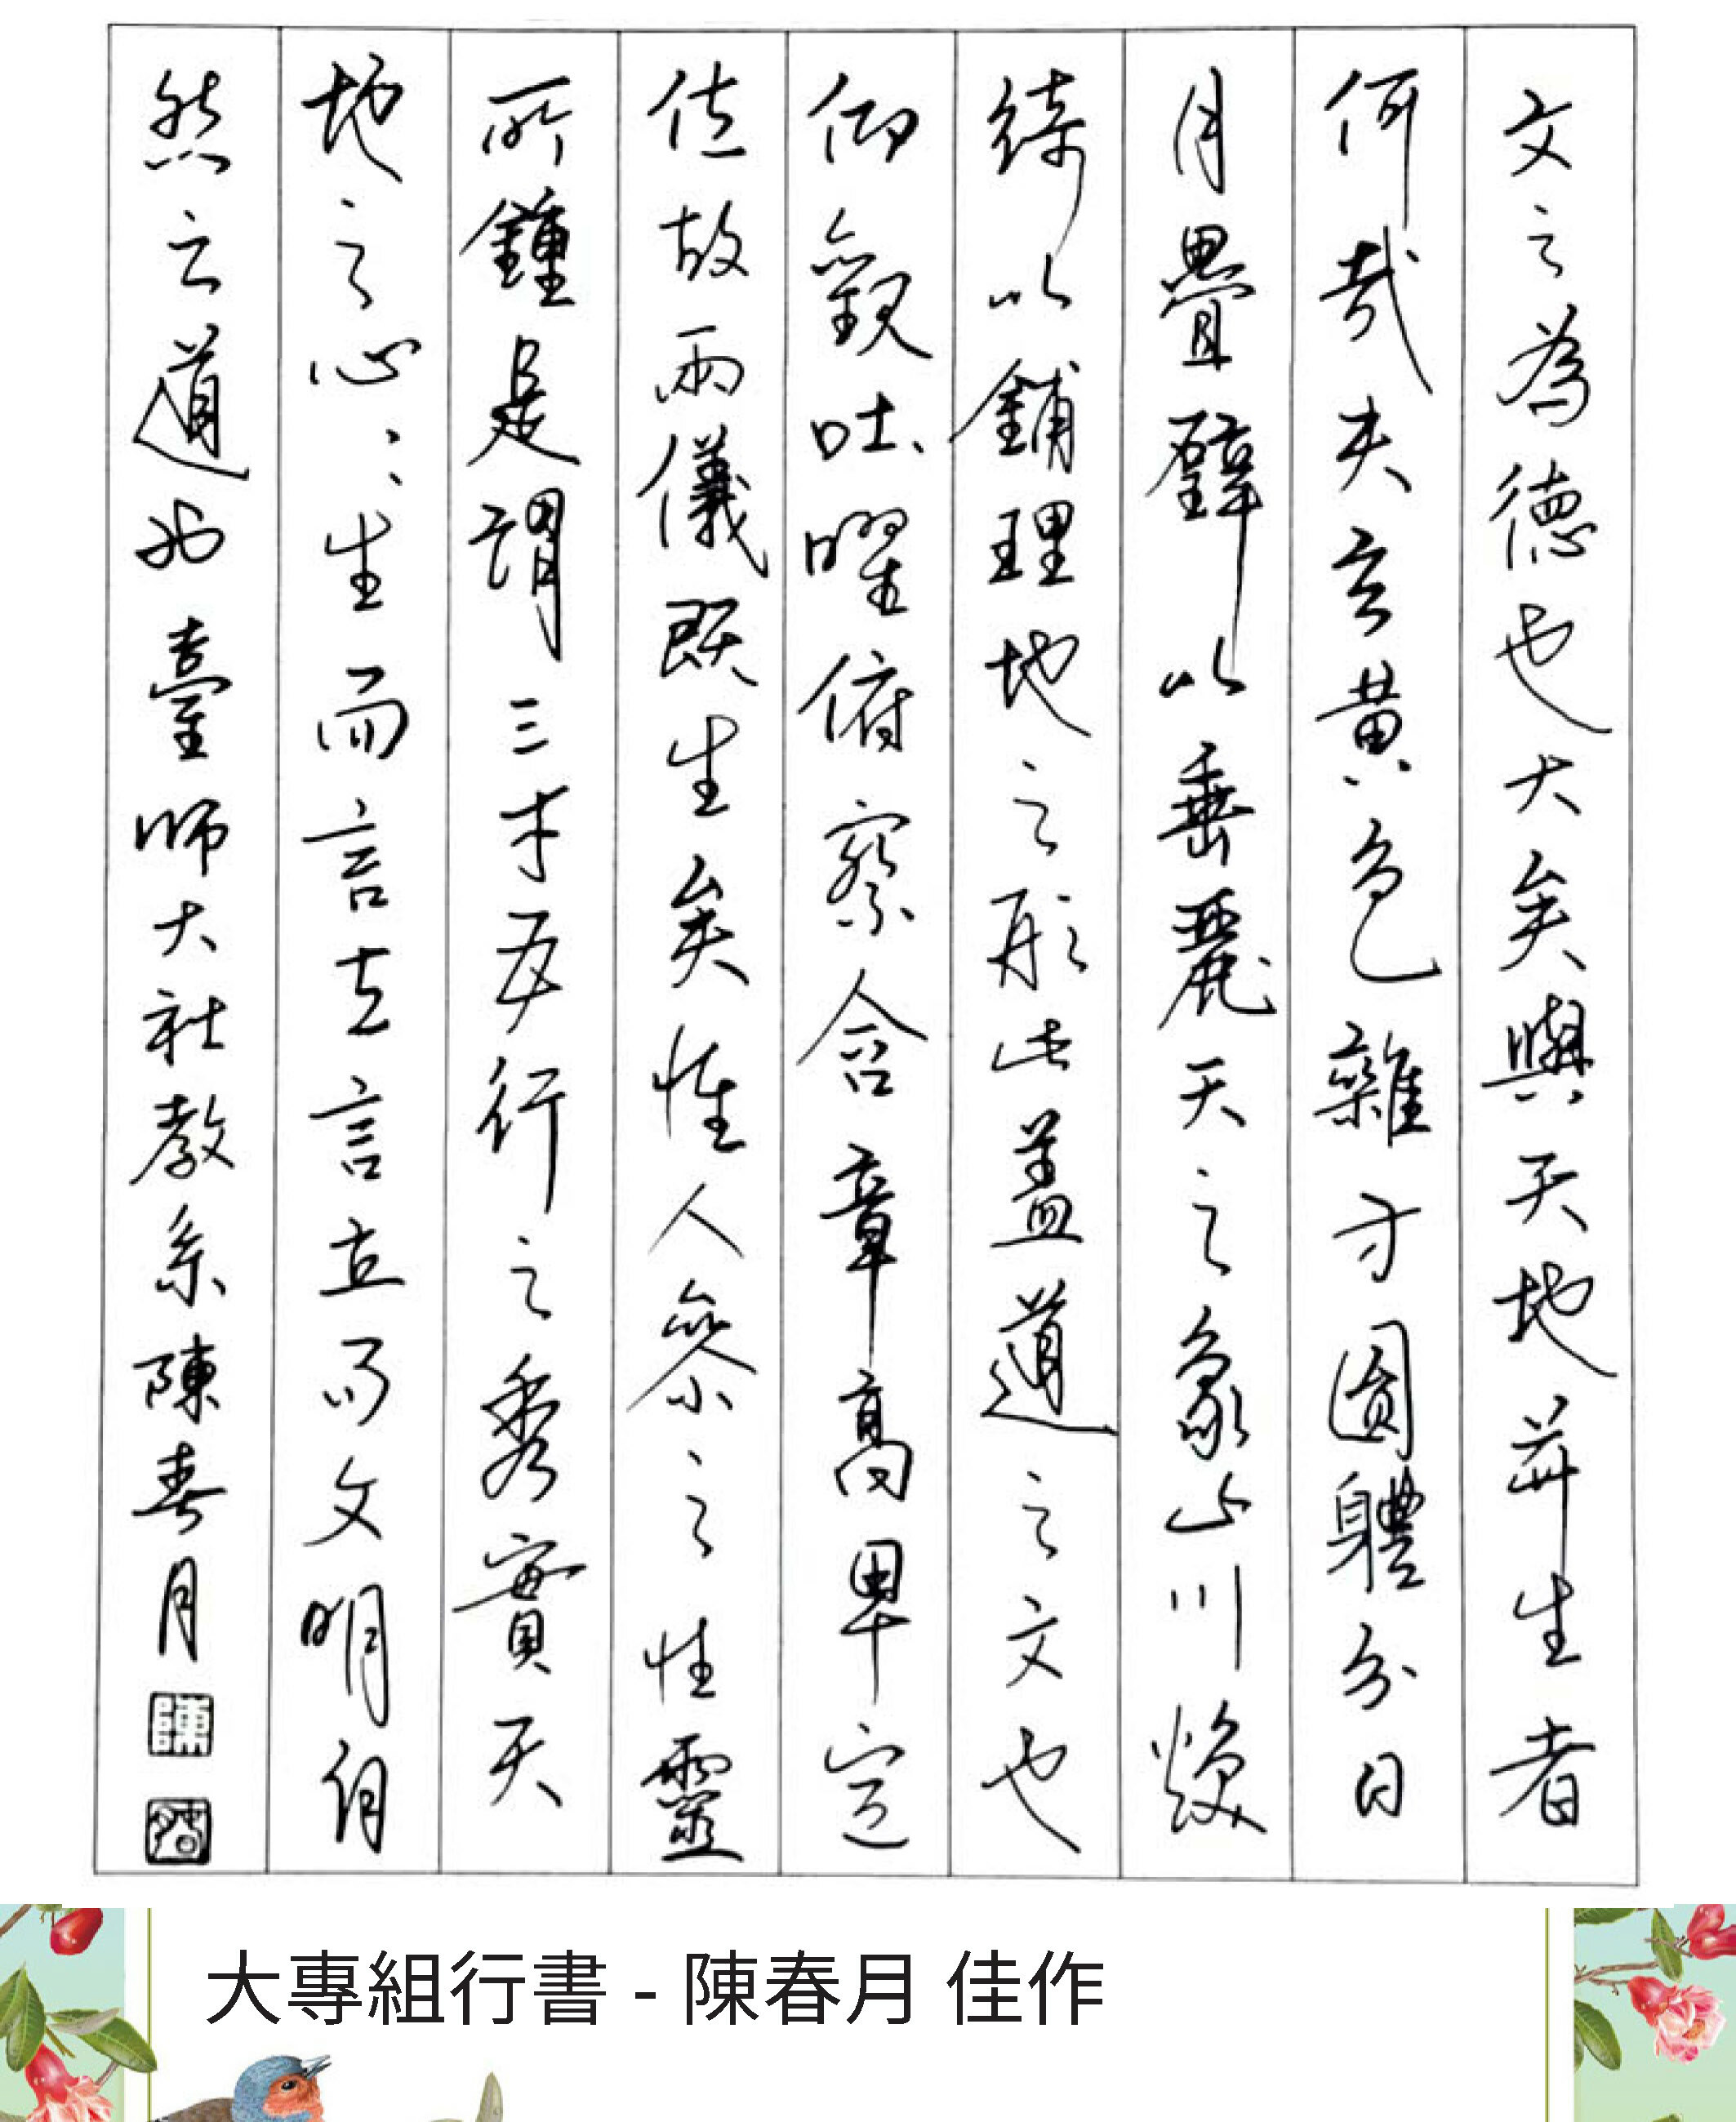 文之為德也大矣與天地并生者
何哉夫玄黃色雜方圓體分日
月疊璧以垂麗天之象山川煥
綺以鋪理地之形此蓋道之文也
仰觀吐曜俯察含章高卑定
位故兩儀既生矣惟人參之性靈
所鍾是謂三才五行之秀實天
地之心〻生而言立言立而文明自
然之道也臺師大社教系陳春月 陳
大專組行書 - 陳春月 佳作